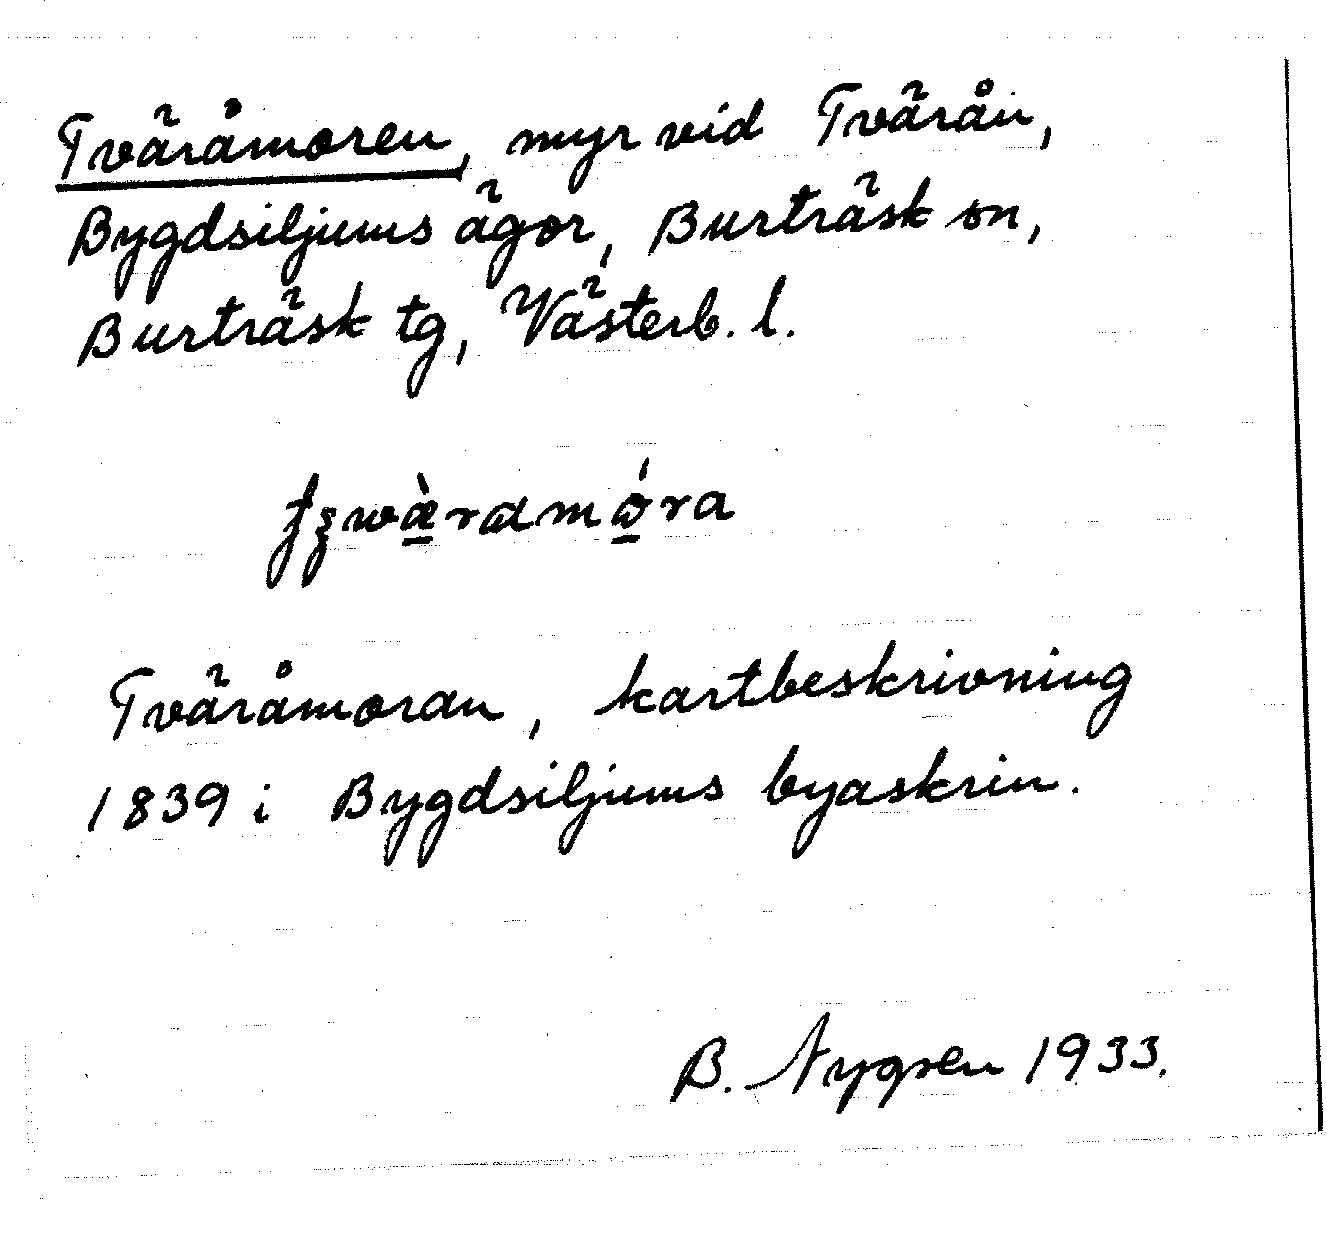 Tväråmoren, myr vid Tvärån,
Bygdsiljums ägor, Burträsk sn,
Burträsk tg, Västerb. l.
Tväråmoran, kartbeskrivning
1839 i Bygdsiljums byaskrin.
B. Nygren 1933.